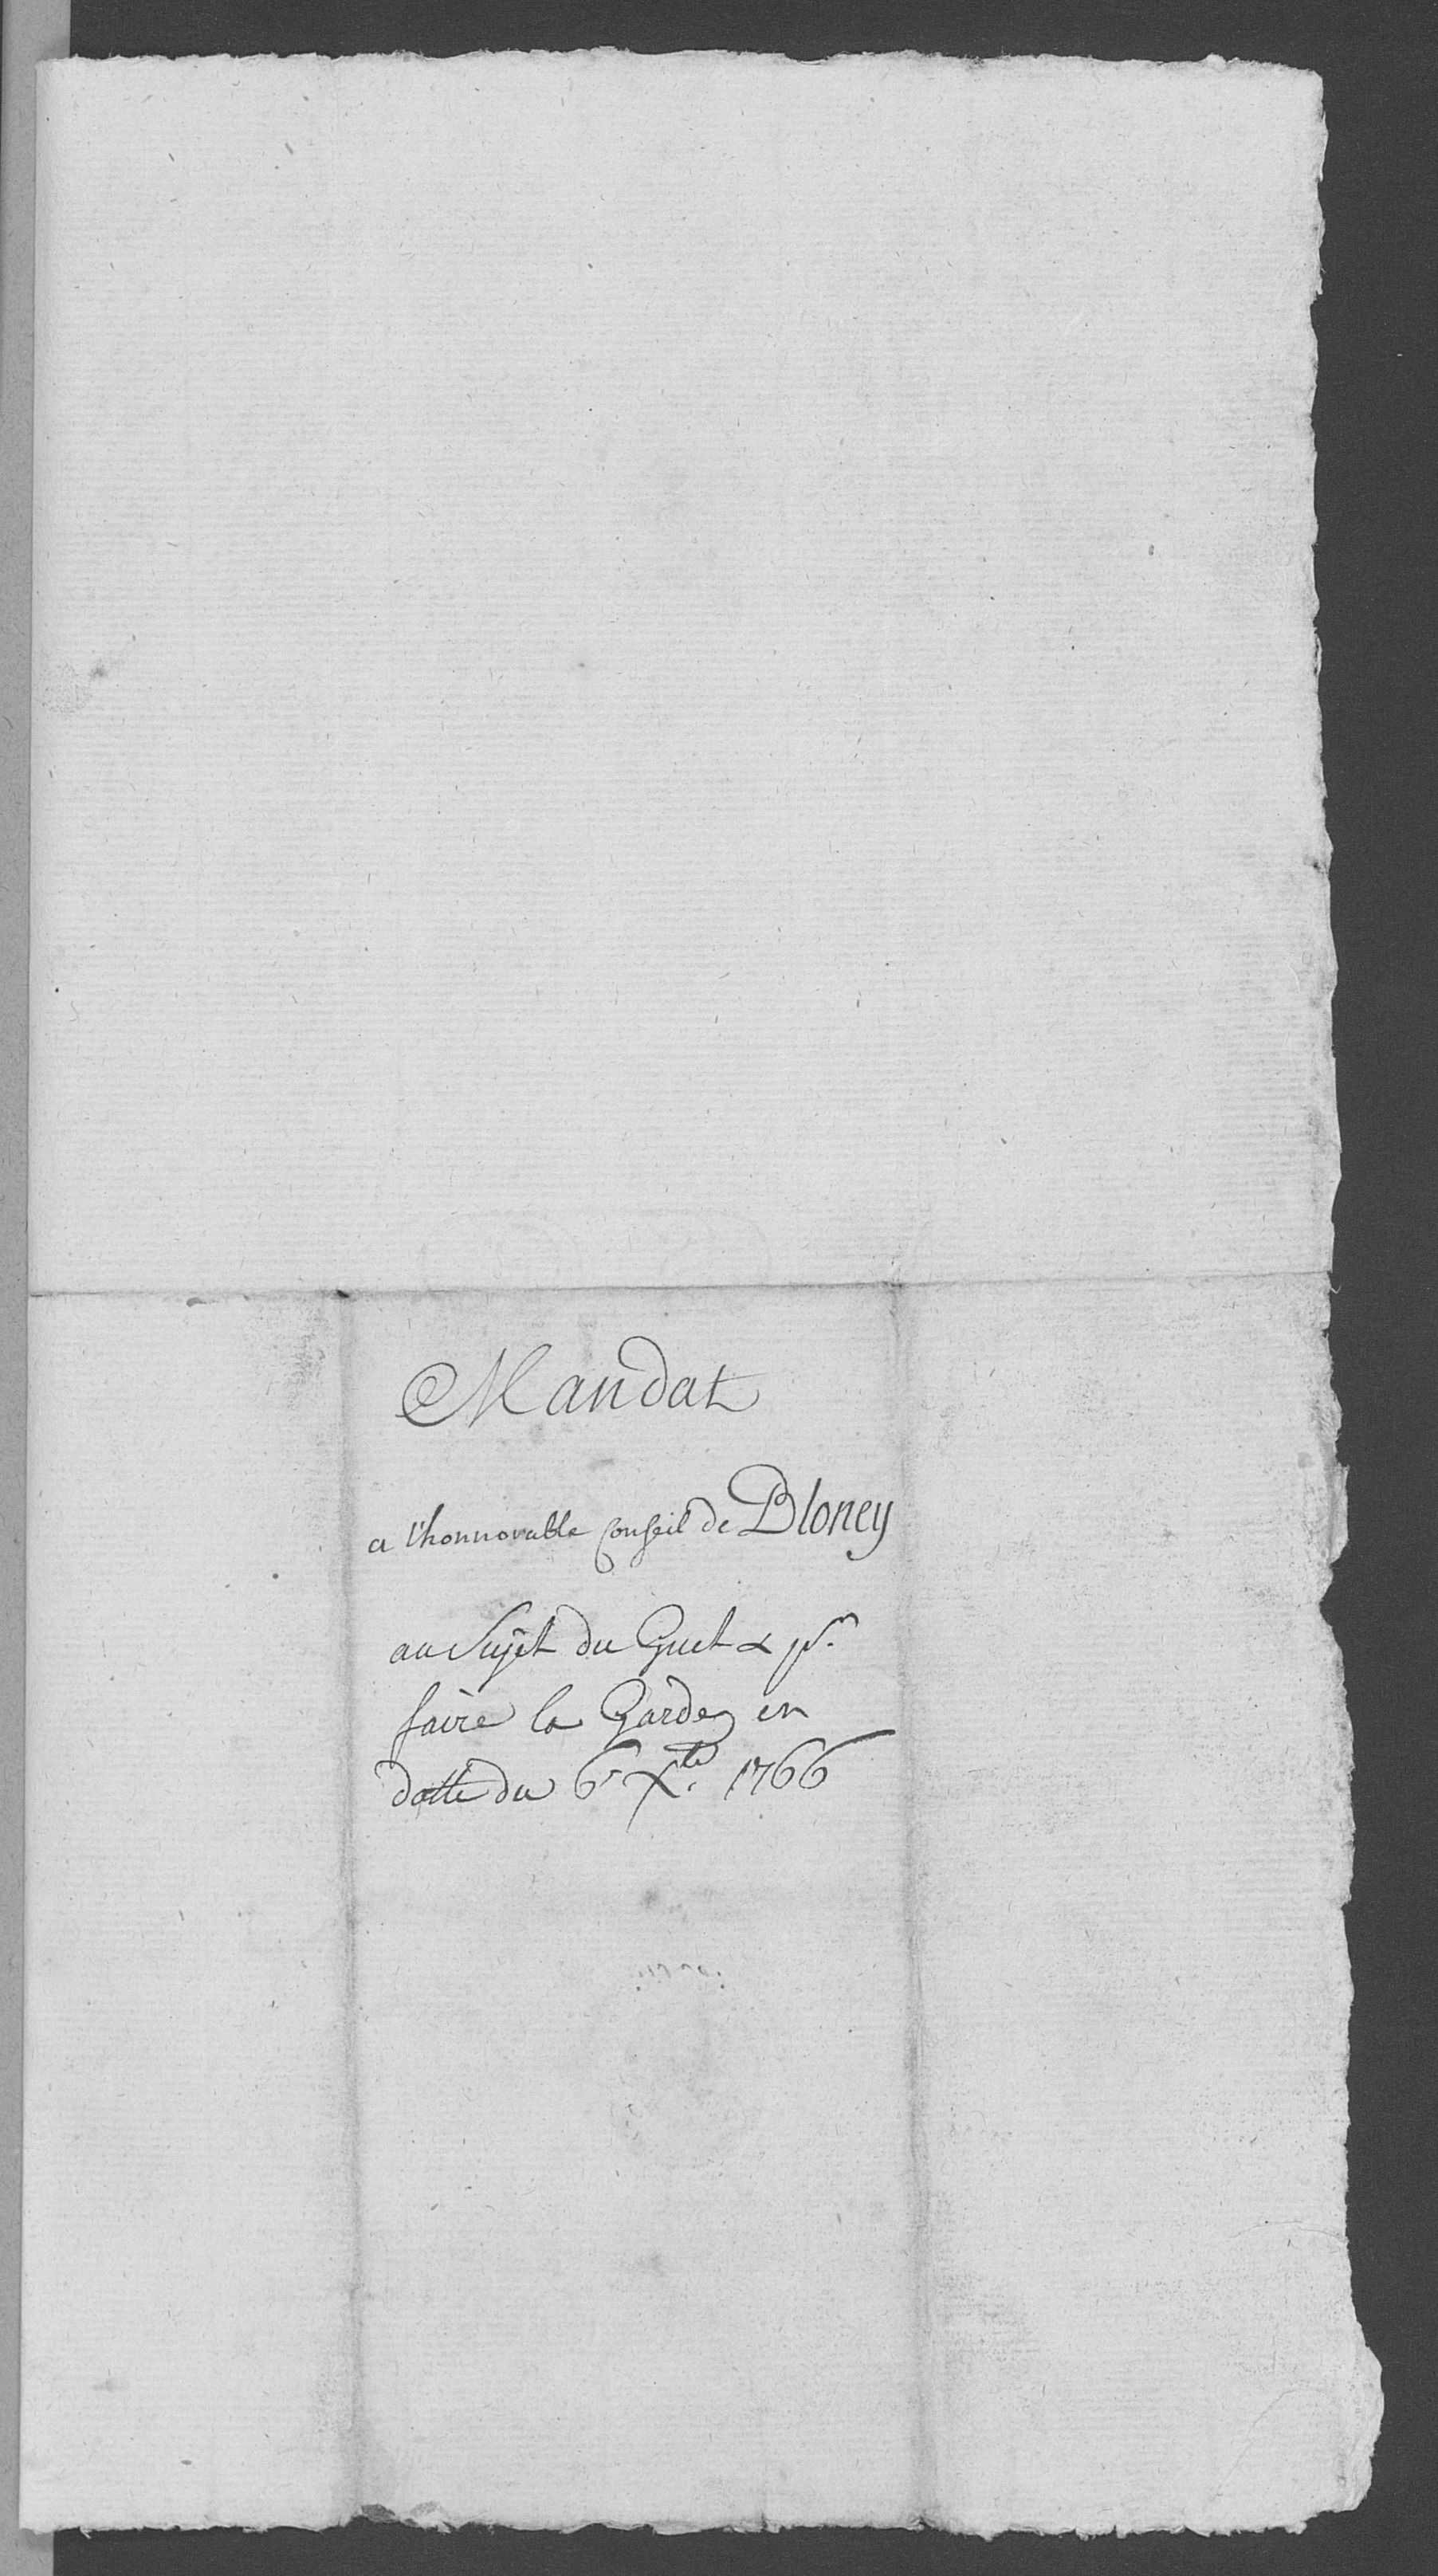 Mandat
a l'honnorable Conseil de Bloney
au Sujet du Guet & pr.
faire la Garde, en
datte du 6e Xbre. 1766